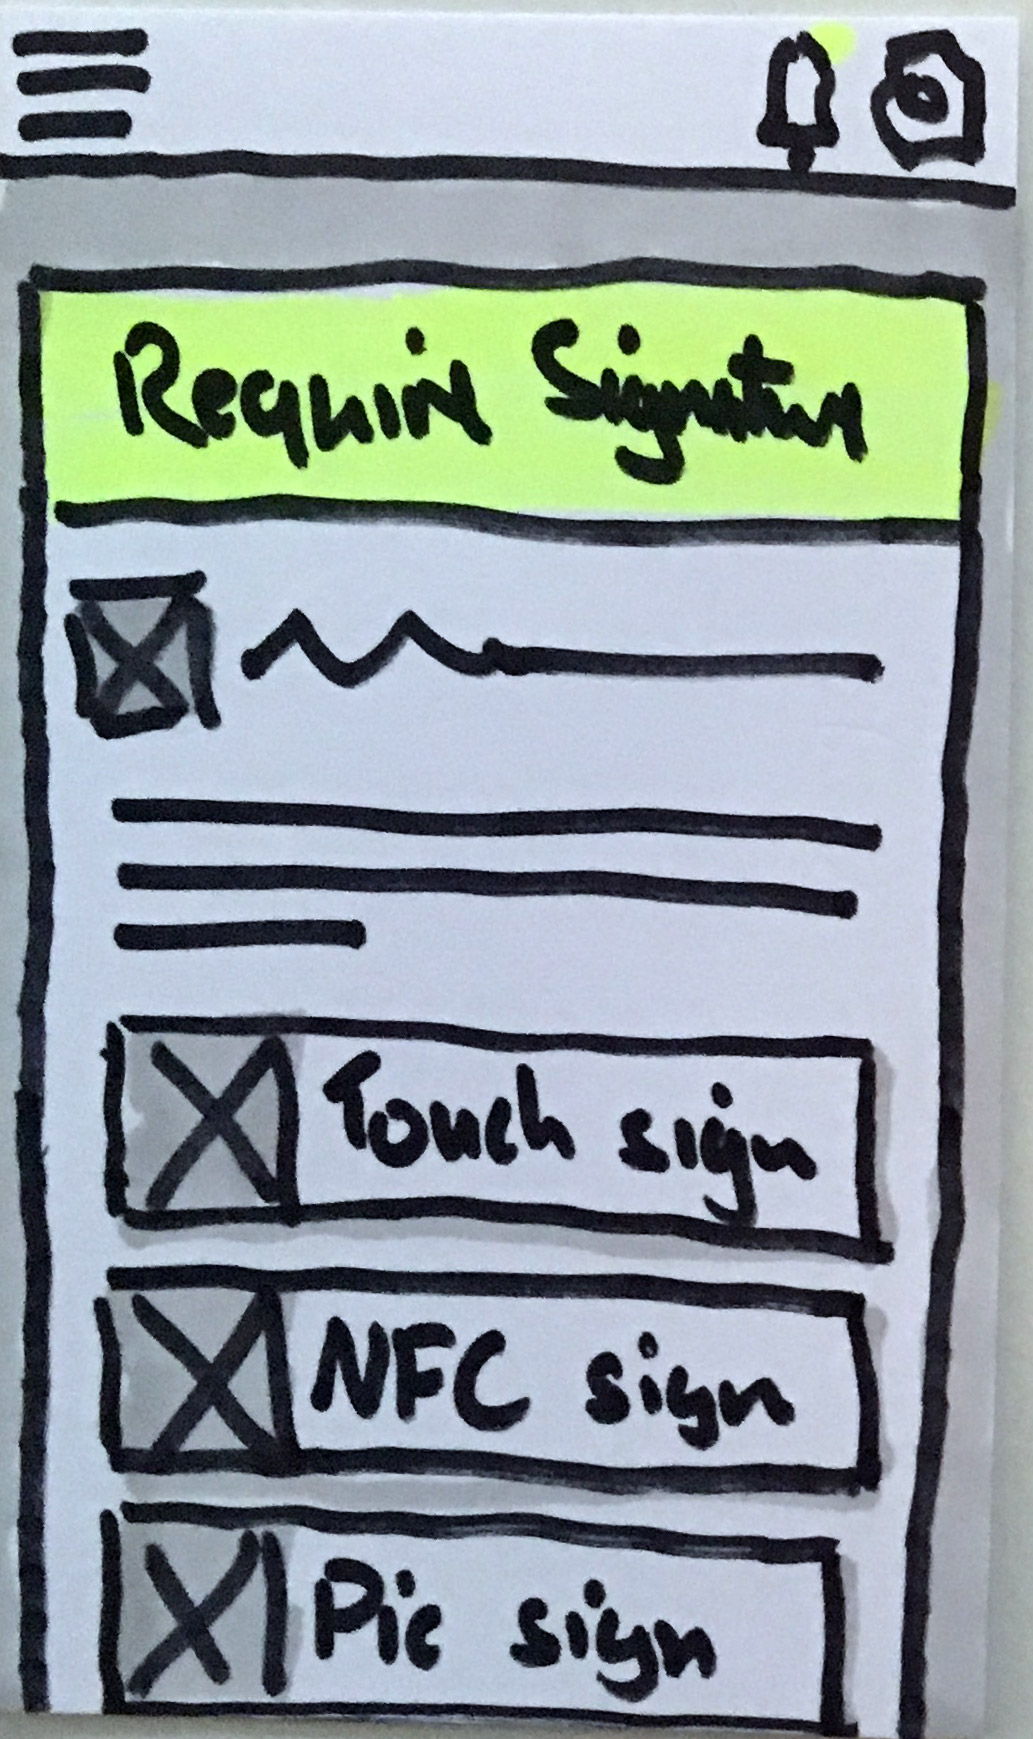 Require Signature
Touch sign
NFC sign
Pic sign